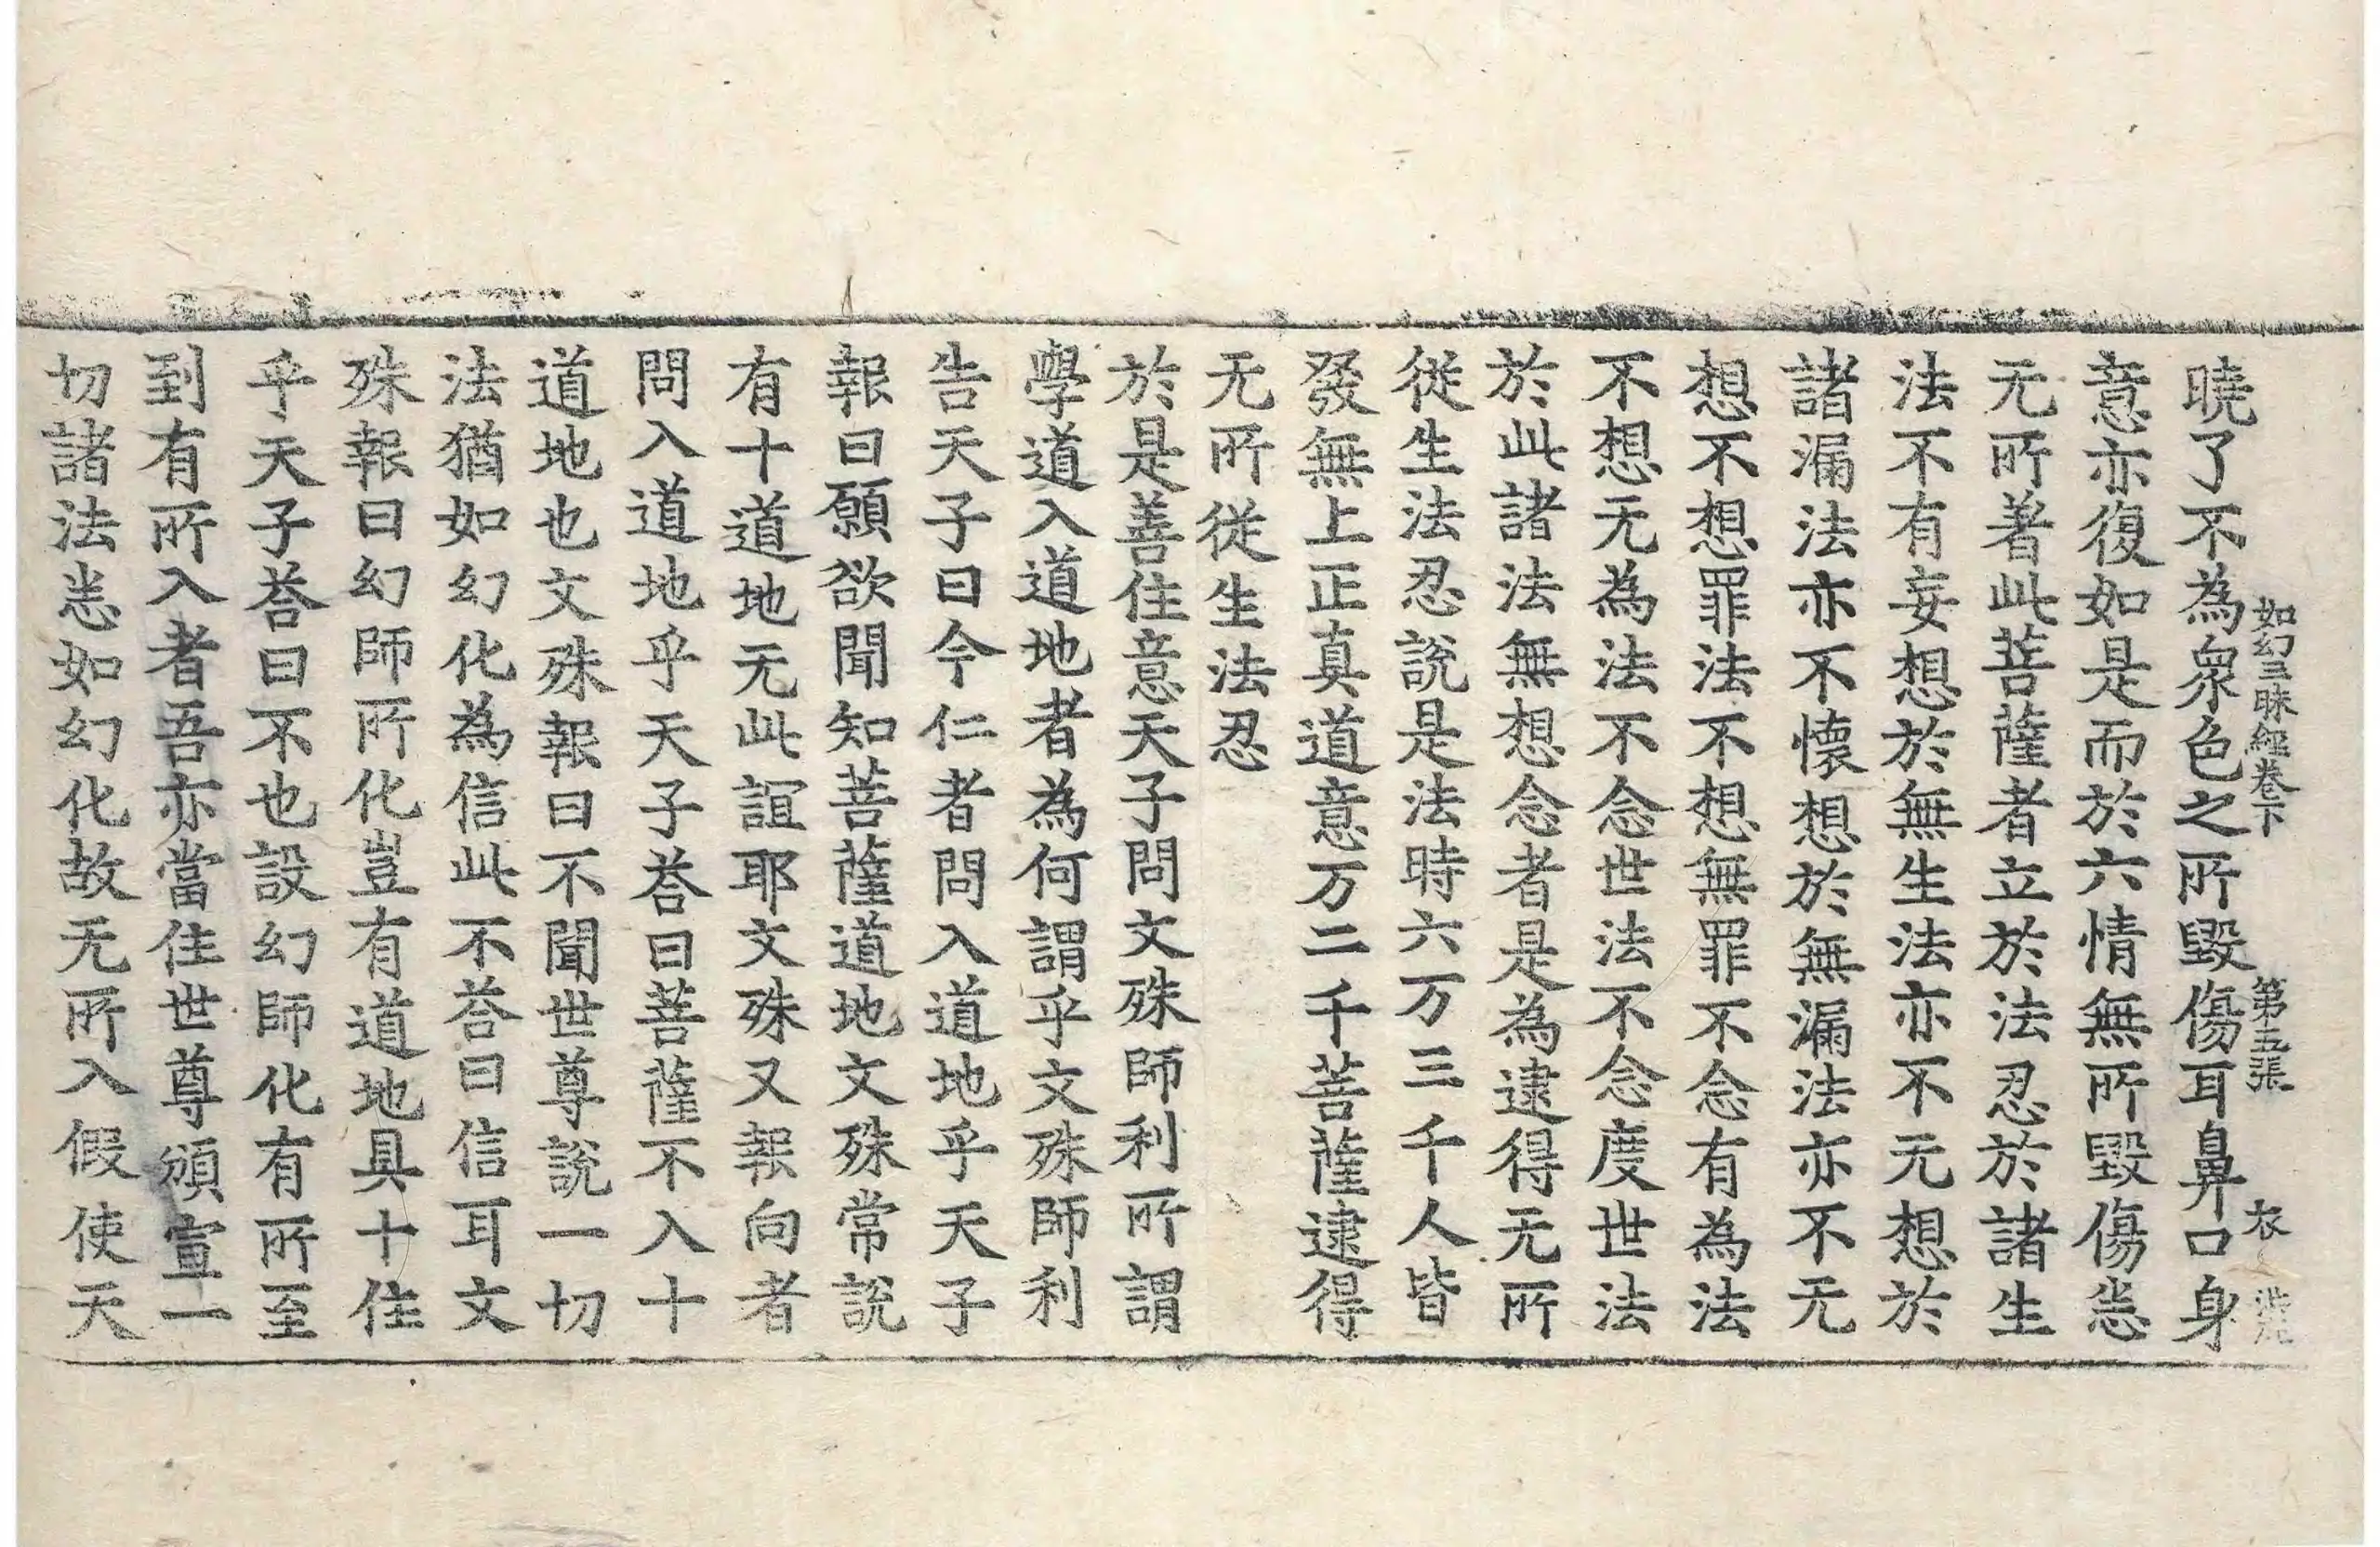 如幻三昧經卷下 第五張 衣
曉了不為衆色之所毀傷耳鼻口身
意亦復如是而於六情無所毀傷恙
无所著此菩薩者立於法忍於諸生
法不有妄想於無生法亦不无想於
諸漏法亦不懷想於無漏法亦不无
想不想罪法不想無罪不念有為法
不想无為法不念世法不念度世法
於此諸法無想念者是為逮得无所
從生法忍說是法時六万三千人皆
發無上正真道意万二千菩薩逮得
无所從生法忍
於是善住意天子問文殊師利所謂
學道入道地者為何謂乎文殊師利
告天子曰今仁者問入道地乎天子
報曰願欲聞知菩薩道地文殊常說
有十道地无此誼耶文殊又報向者
問入道地乎天子荅曰菩薩不入十
道地也文殊報曰不聞世尊說一切
法猶如幻化為信此不荅曰信耳文
殊報曰幻師所化豈有道地具十住
乎天子荅曰不也設幻師化有所至
到有所入者吾亦當住世尊頒宣一
切諸法恙如幻化故无所入假使天